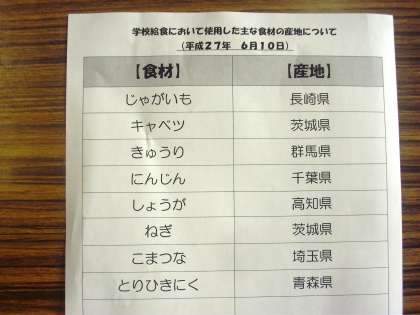 学校給食において使用した主な食材の産地について
（平成２７年　６月１０日）
【食材】　【産地】
じゃがいも　長崎県
キャベツ　茨城県
きゅうり　群馬県
にんじん　千葉県
しょうが　高知県
ねぎ　茨城県
こまつな　埼玉県
とりひきにく　青森県